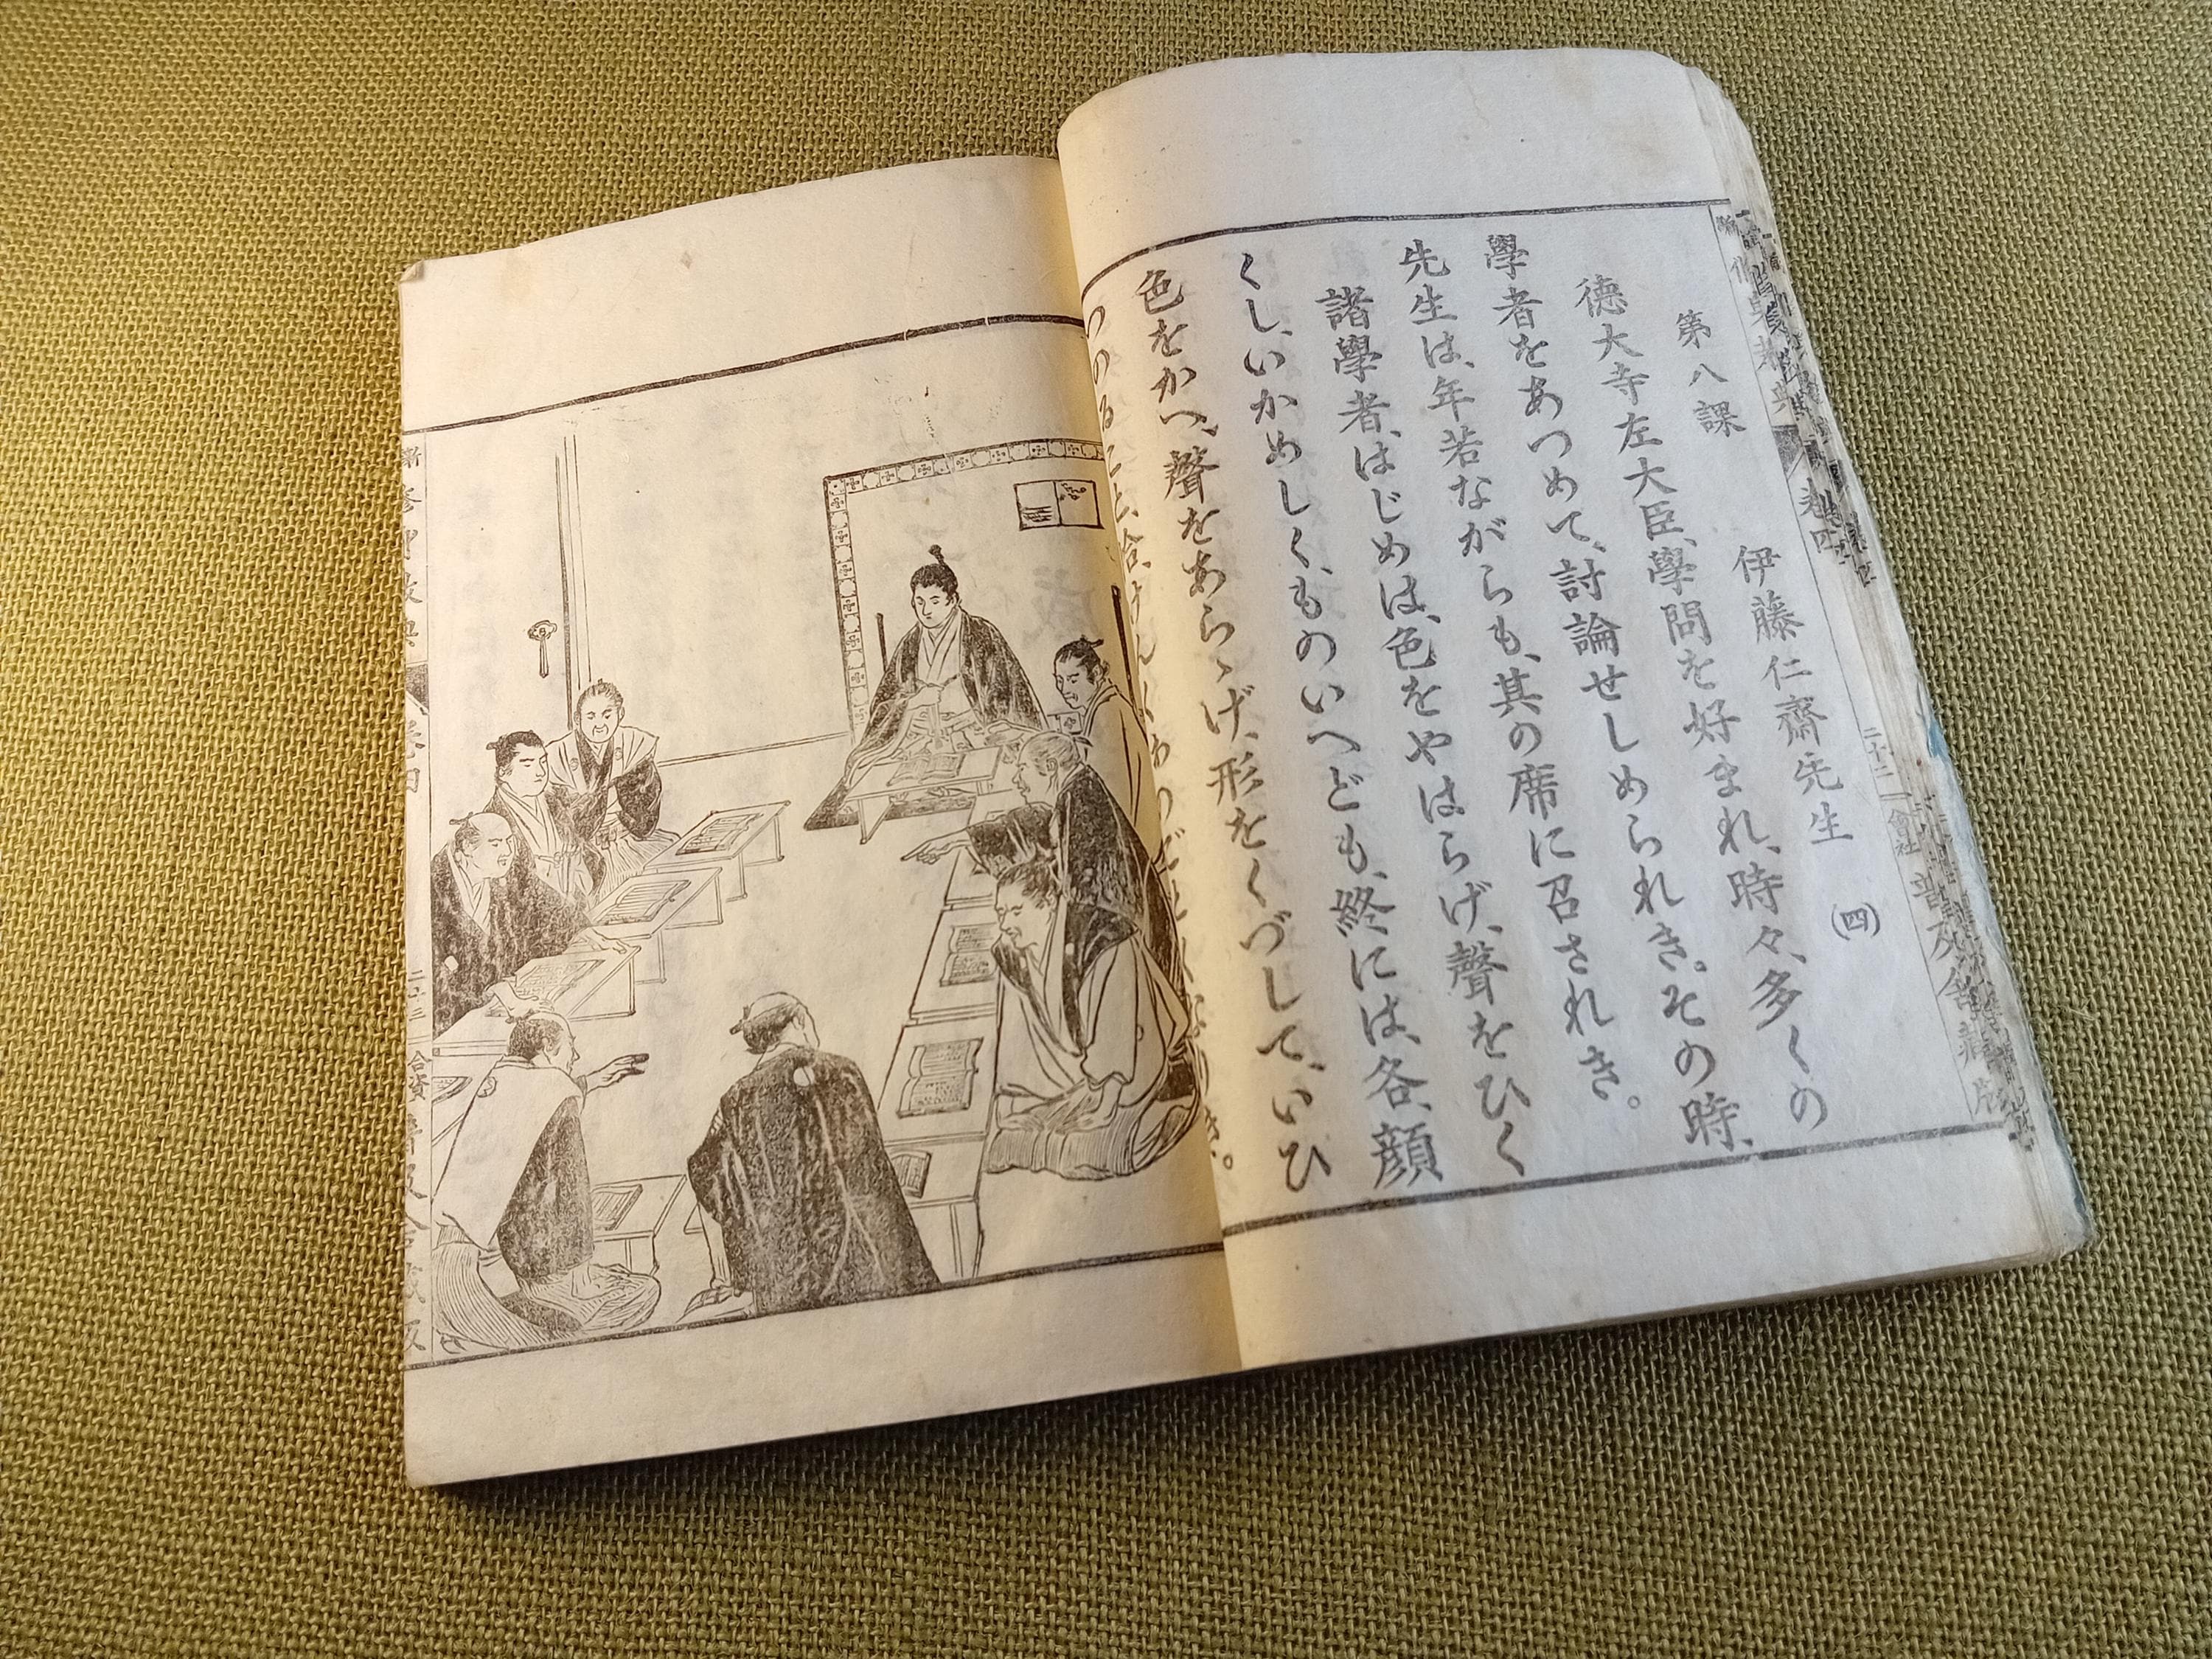 第八課　伊藤仁齋先生　(四)
德大寺左大臣、學問を好まれ、時々、多くの
學者をあつめて、討論せしめられき。その時、
先生は、年若ながらも、其の席に召されき。
諸學者、はじめは、色をやはらげ、聲をひく
くし、いかめしく、ものいへども、終には、各、顔
色をかへ、聲をあらゝげ、形をくづして、いひ
つのること、
二十二
會社
卷四
二十三
合資